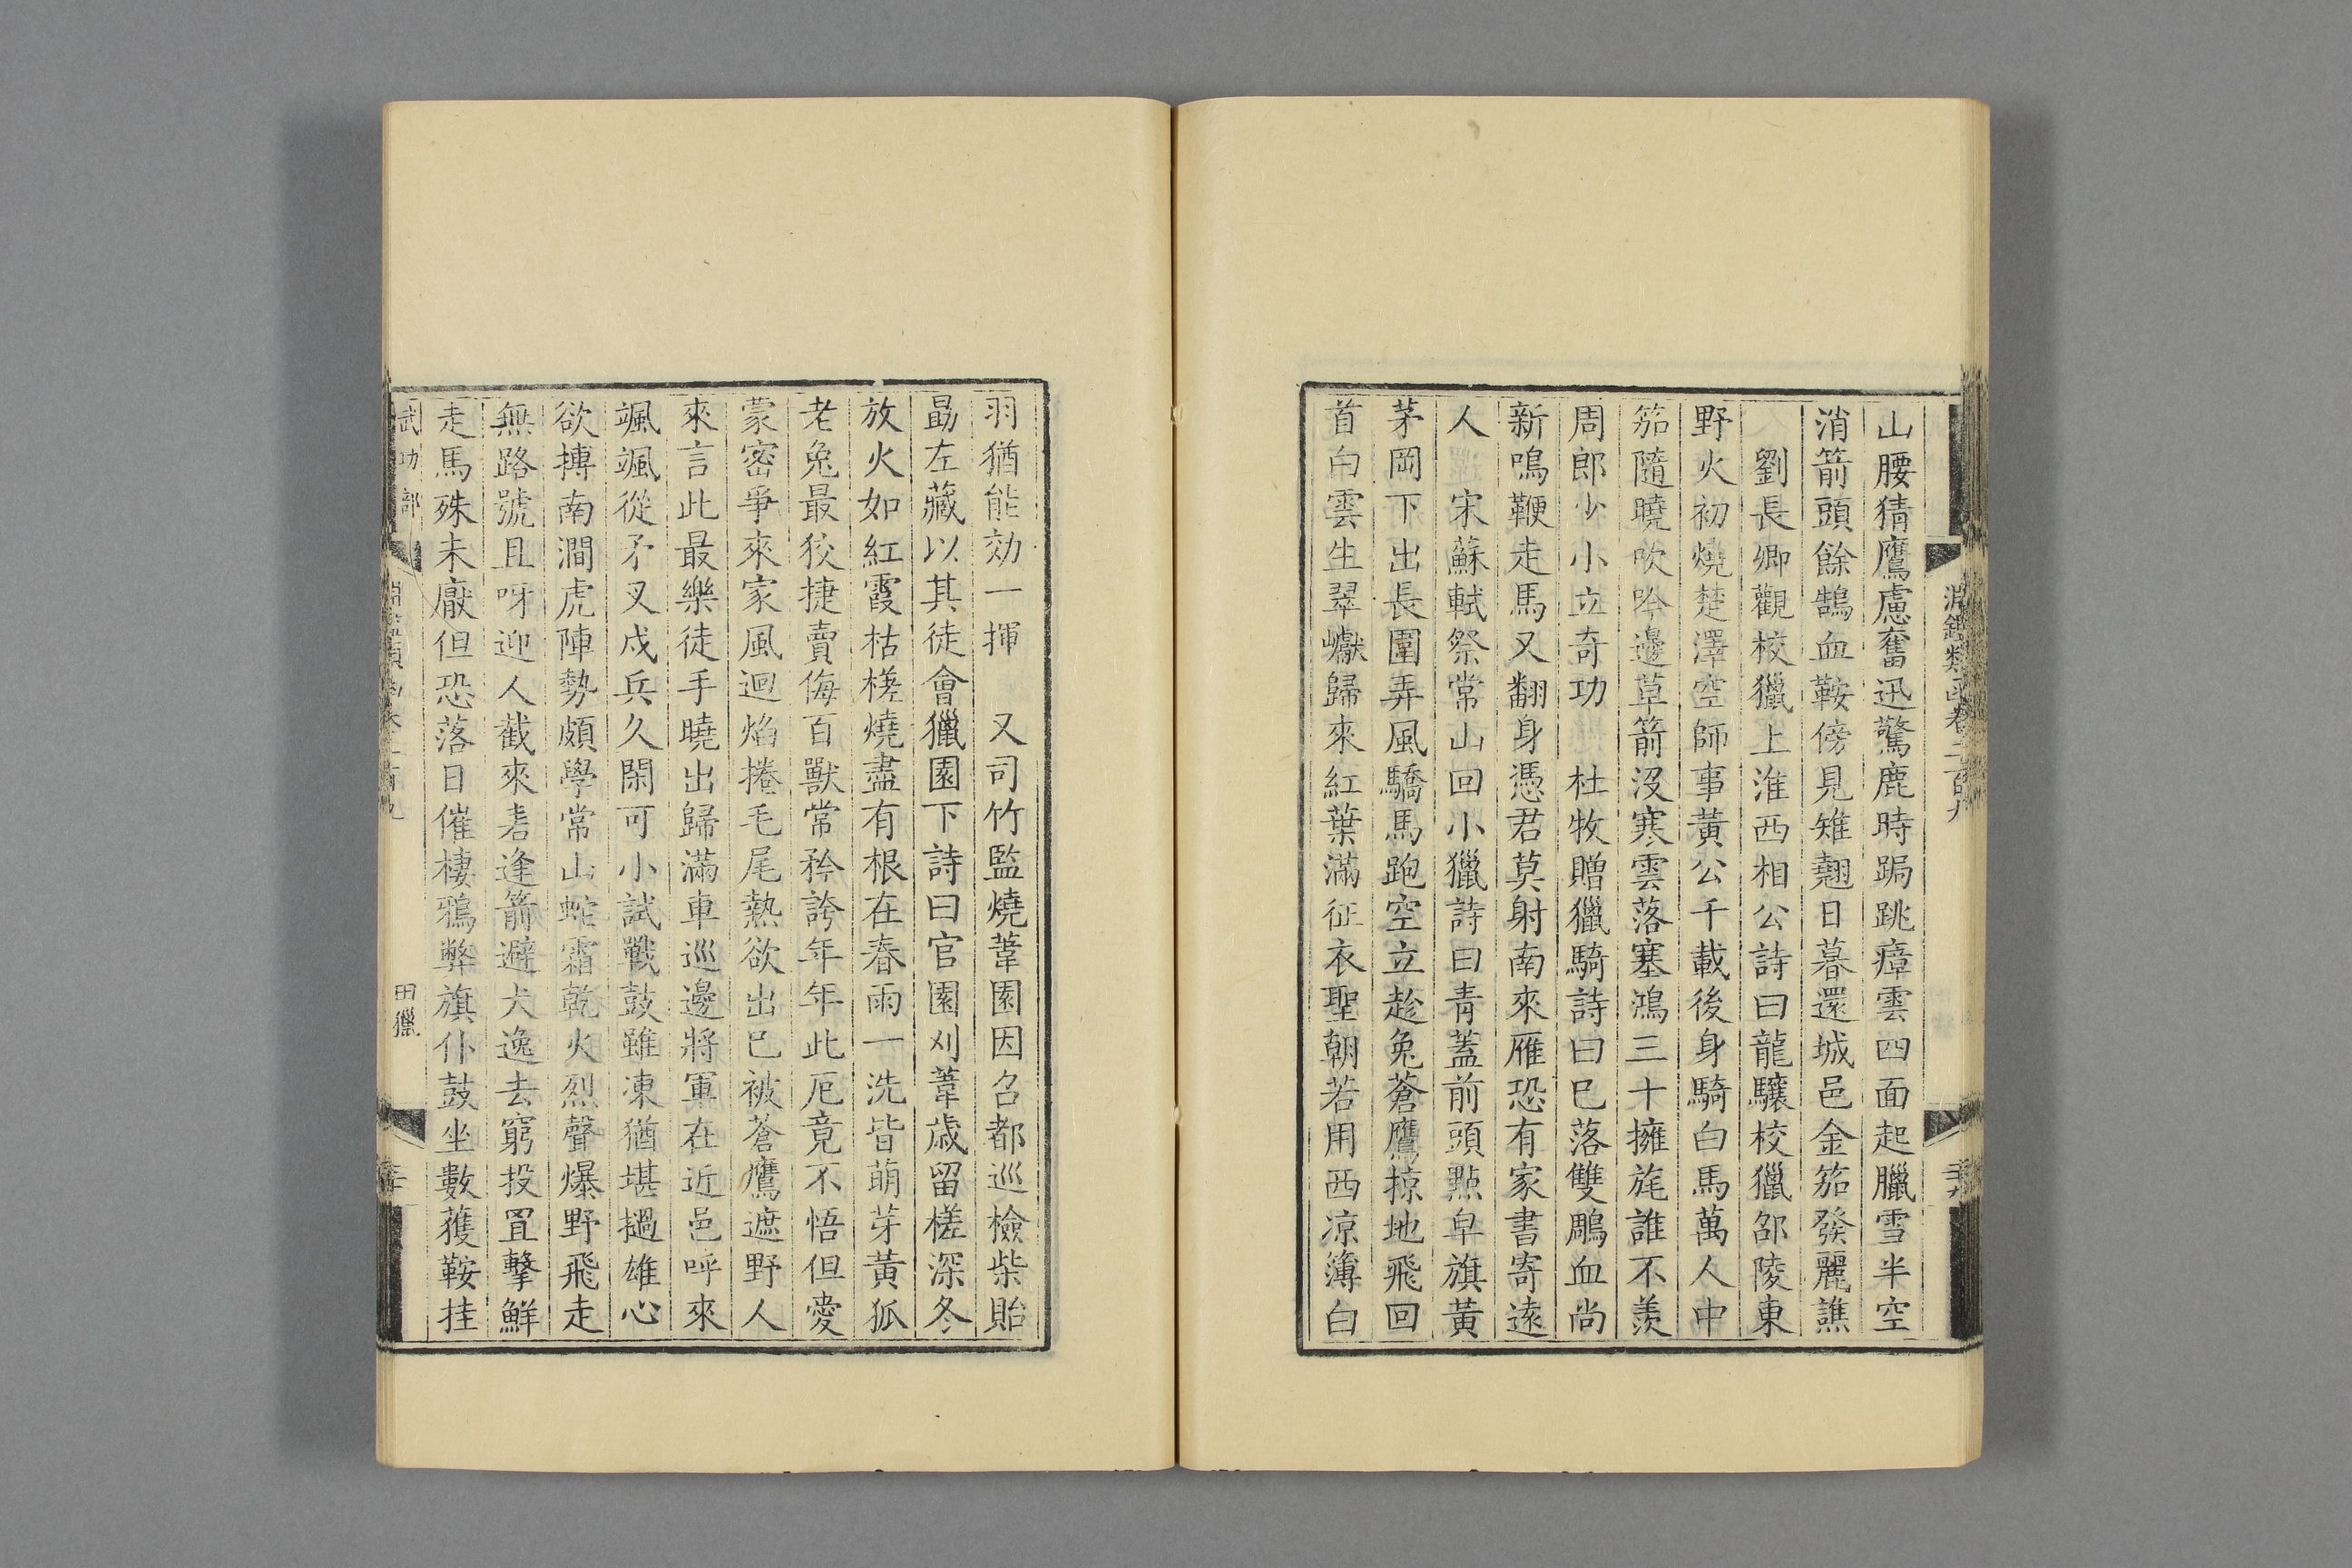 淵鑑類函卷二百九
山腰猜鷹慮奮迅驚鹿時跼跳瘴雲四面起臘雪半空
消箭頭餘鵠血鞍傍見雉翹日暮還城邑金笳發麗譙
劉長卿觀校獵上淮西相公詩曰龍驤校獵邵陵東
野火初燒楚澤空師事黃公千載後身騎白馬萬人中
笳隨曉吹吟邊草箭沒寒雲落塞鴻三十擁旄誰不羨
周郎少小立奇功　杜牧贈獵騎詩曰已落雙鵰血尚
新鳴鞭走馬又翻身憑君莫射南來雁恐有家書寄遠
人　宋蘇軾祭常山回小獵詩曰青蓋前頭㸃皁旗黃
茅岡下出長圍弄風驕馬跑空立趁兔蒼鷹掠地飛回
首白雲生翠巘歸來紅葉滿征衣聖朝若用西凉簿白
羽猶能効一揮　又司竹監燒葦園因召都巡檢柴貽
勗左藏以其徒會獵園下詩曰官園刈葦歲留槎深冬
放火如紅霞枯槎燒盡有根在春雨一洗皆萌芽黃狐
老兔最狡捷賣侮百獸常矜誇年年此厄竟不悟但愛
蒙密爭來家風迴焰捲毛尾熱欲出已被蒼鷹遮野人
來言此最樂徒手曉出歸滿車巡邊將軍在近邑呼來
颯颯從矛叉戍兵久閑可小試戰鼓雖凍猶堪撾雄心
欲搏南澗虎陣勢頗學常山蛇霜乾火烈聲爆野飛走
無路號且呀迎人截來砉逢箭避犬逸去窮投罝擊鮮
走馬殊未厭但恐落日催棲鴉弊旗仆鼓坐數獲鞍挂
武功部
田獵